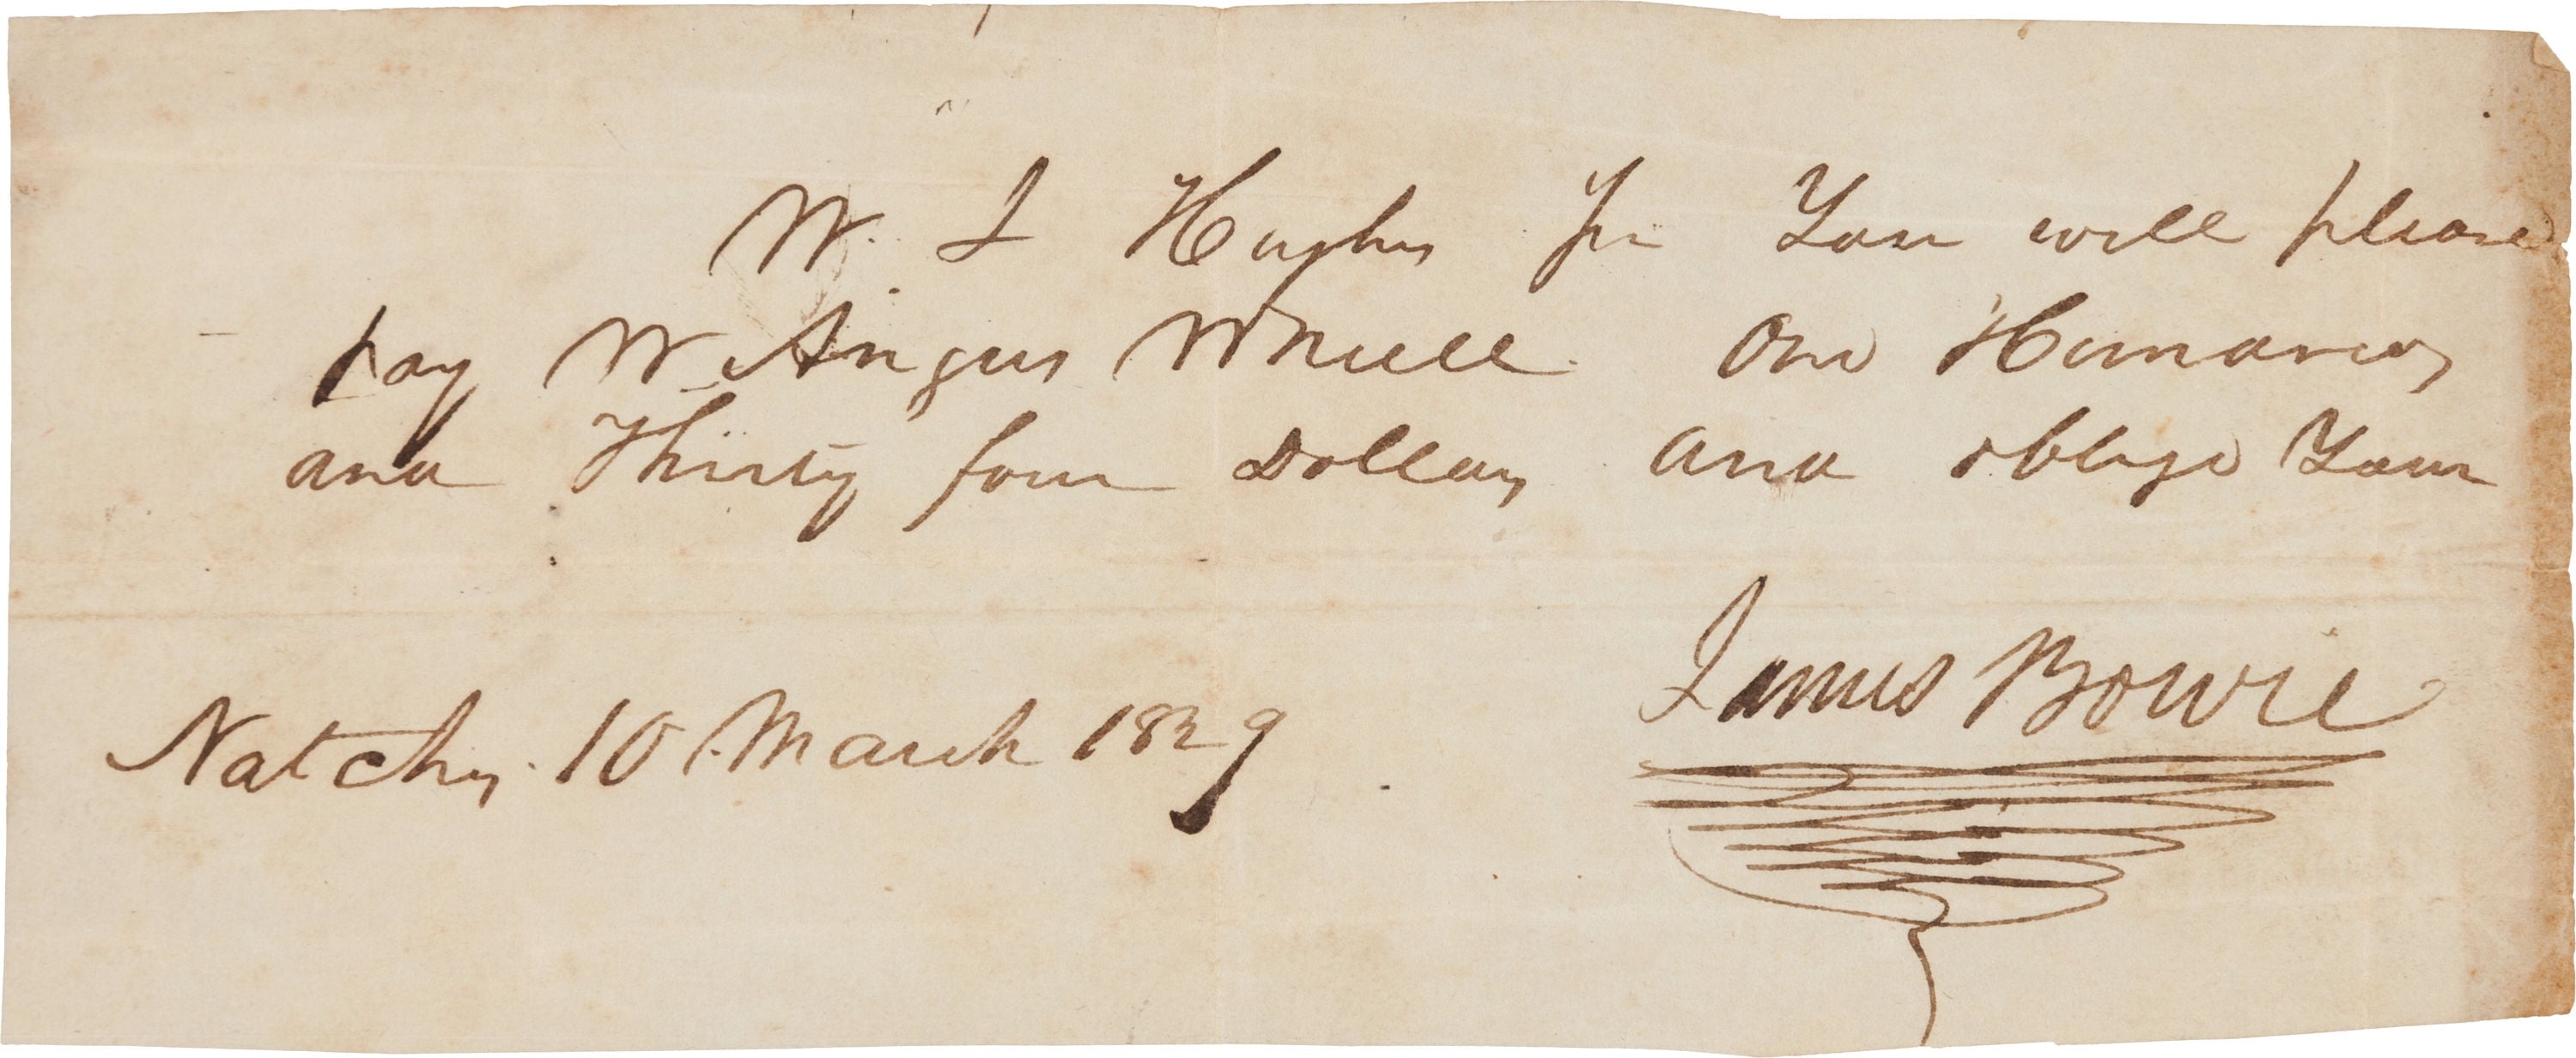 W. I Hughes Jr You will please
pay W. Angus McNeill One Hundred
and Thirty four Dollars and oblige Your
James Bowie
Natchez 10 March 1829